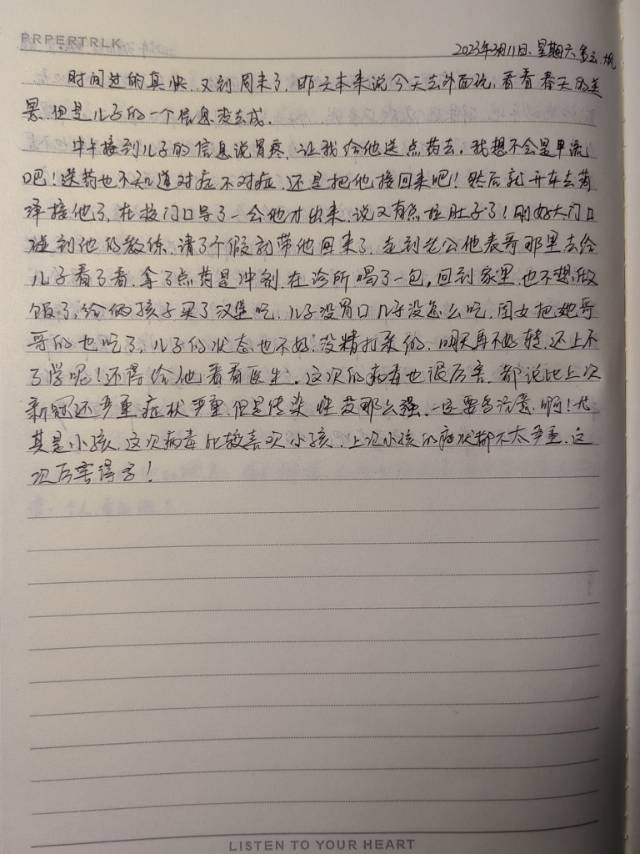 PRPERTRLK
2023年3月11日.星期六.多云.
时间过的真快.又到周末了.昨天本来说今天去外面玩,看看春天的美
景.但是儿子的一个信息没去成.
中午接到儿子的信息说胃疼.让我给他送点药去,我想不会是甲流
吧!送药也不知道对症不对症.还是把他接回来吧!然后就开车去菏
泽接他了.在校门口等了一会他才出来.说又有点拉肚子了!刚好大门口
碰到他的教练.请了个假就带他回来了.走到老公他表哥那里去给
儿子看了看.拿了点药是冲剂.在诊所喝了一包,回到家里.也不想做
饭了,给俩孩子买了汉堡吃.儿子没胃口几乎没怎么吃.闺女把她哥
哥的也吃了,儿子的状态也不好.没精打采的.明天再不好转.还上不
了学呢!还得给他看看医生.这次的病毒也很厉害.都说比上次
新冠还严重.症状严重.但是传染性没那么强.一定要多注意啊!尤
其是小孩.这次病毒比较喜欢小孩.上次小孩的症状都不太严重.这
次厉害得多!
LISTEN TO YOUR HEART